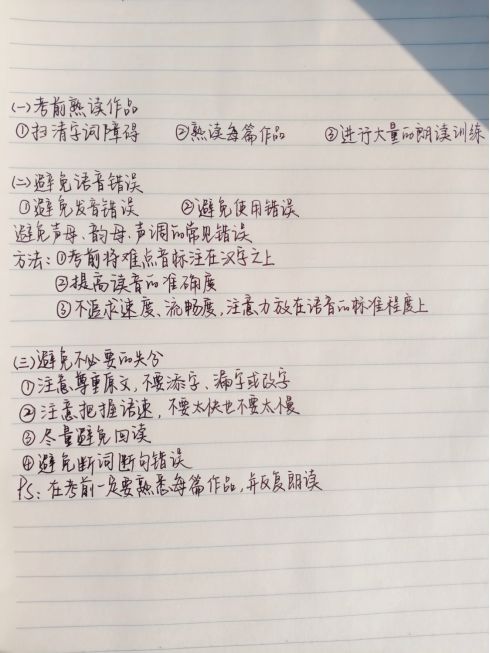 (一)考前熟读作品
①扫清字词障碍 ②熟读每篇作品 ③进行大量的朗读训练
(二)避免语音错误
①避免发音错误 ②避免使用错误
避免声母、韵母、声调的常见错误
方法:①考前将难点音标注在汉字之上
②提高读音的准确度
③不追求速度、流畅度,注意力放在语音的标准程度上
(三)避免不必要的失分
①注意尊重原文,不要添字、漏字或改字
②注意把握语速,不要太快也不要太慢
③尽量避免回读
④避免断词断句错误
PS:在考前一定要熟悉每篇作品,并反复朗读